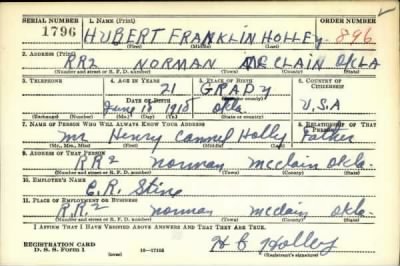 SERIAL NUMBER 1. NAME (Print) ORDER NUMBER
1796 HUBERT FRANKLIN HOLLEY 896
(First) (Middle) (Last)
2. ADDRESS (Print)
RR2 NORMAN McCLAIN OKLA
(Number and street or R. F. D. number) (Town) (County) (State)
3. TELEPHONE 4. AGE IN YEARS 5. PLACE OF BIRTH 6. COUNTRY OF CITIZENSHIP
21 GRADY
DATE OF BIRTH (Town or county)
June 18 1918 Okla. U.S.A
(Exchange) (Number) (Mo.) (Day) (Yr.) (State or country)
7. NAME OF PERSON WHO WILL ALWAYS KNOW YOUR ADDRESS 8. RELATIONSHIP OF THAT PERSON
Mr Henry Holley Father
(Mr., Mrs., Miss) (First) (Middle) (Last)
9. ADDRESS OF THAT PERSON
RR2 norman mcclain Okla.
(Number and street or R. F. D. number) (Town) (County) (State)
10. EMPLOYER'S NAME
11. PLACE OF EMPLOYMENT OR BUSINESS
R.R.2 norman mcclain Okla.
(Number and street or R. F. D. number) (Town) (County) (State)
I AFFIRM THAT I HAVE VERIFIED ABOVE ANSWERS AND THAT THEY ARE TRUE.
REGISTRATION CARD
D. S. S. Form 1 (over) Holley
(Registrant's signature)